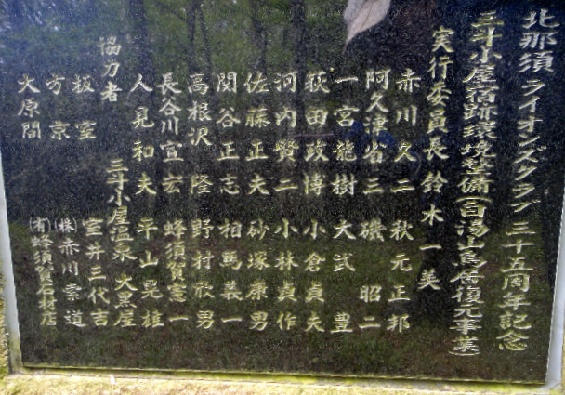 北那須ライオンズクラブ三十五周年記念
三斗小屋宿跡環境整備(白湯山鳥居復元事業)
実行委員長 鈴木一美
赤川久二 秋元正邦
阿久津省三 磯昭二
一宮龍樹 大武豊
荻田政博 小倉貞夫
河内賢二 小林貞作
佐藤正夫 砂塚康男
関谷正志 相馬義一
高根沢隆 野村欣男
長谷川宣宏 蜂須賀憲一
人見和夫 平山晃雄
協力者 三斗小屋温泉 大黒屋
板室 室井三代吉
方京 (株)赤川索道
大原間 (有)蜂須賀石材店